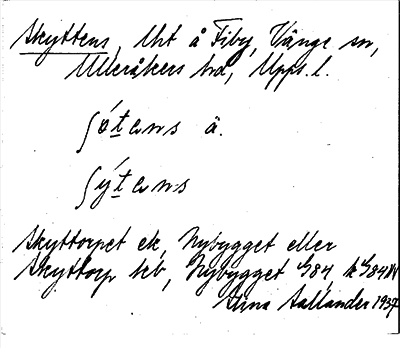 Skyttens, lht å Fiby, Vänge sn,
Ulleråkers hd, Upps. l.
ʃǿtens ä.
ʃýtens
Skyttorpet ek, Nybygget eller
Skyttorp teb, Nybygget
Stina Aallander 1937